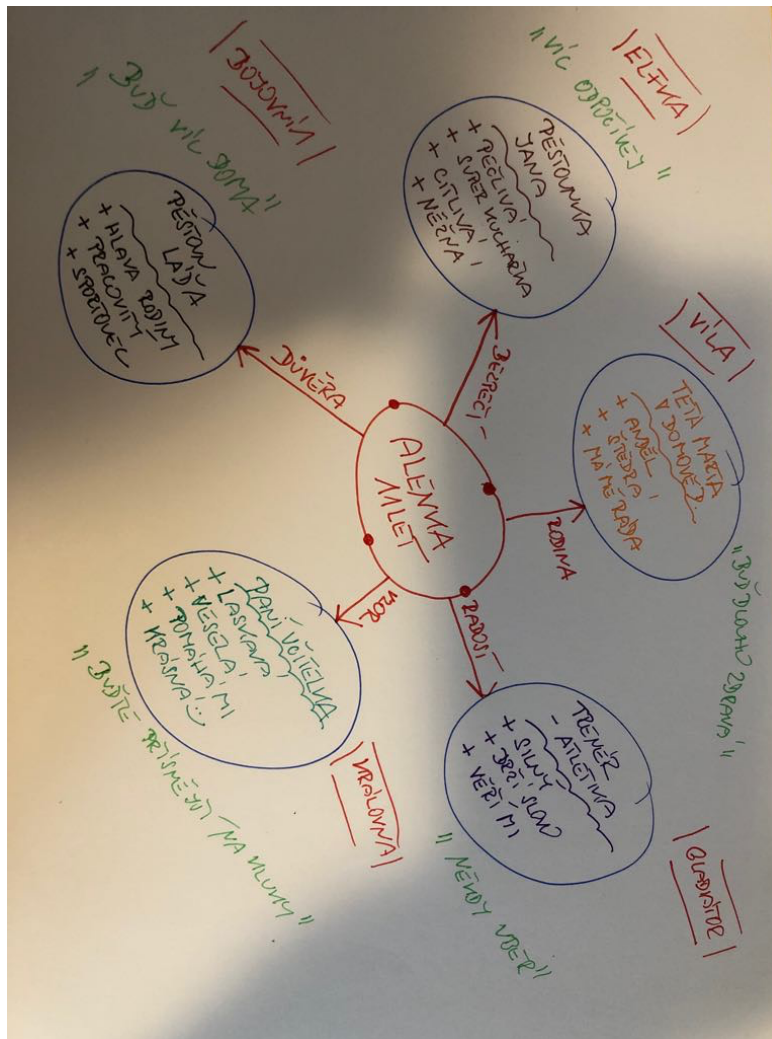 ALENKA
11 LET
DŮVĚRA
BEZPEČÍ
RODINA
RADOST
VZOR
|BOJOVNÍK|
"BUĎ VÍC DOMA"
PĚSTOUN
LÁĎA
+ HLAVA RODINY
+ PRACOVITÝ
+ SPORTOVEC
|ELFKA|
"VÍC ODPOČÍVEJ"
PĚSTOUNKA
JANA
+ PEČLIVÁ
+ SUPER KUCHAŘKA
+ CITLIVÁ
+ NĚŽNÁ
|VÍLA|
TETA MARTA
V DOMOVĚ
+ ANDĚL
+ ŠTĚDRÁ
+ MÁ MĚ RÁDA
"BUĎ DLOUHO ZDRAVÁ"
|GLADIÁTOR|
TRENÉR
- ATLETIKA
+ SILNÝ
+ DRŽÍ SLOVO
+ VĚŘÍ MI
"NĚKDY UBER"
|KRÁLOVNA|
PANÍ UČITELKA
+ LASKAVÁ
+ VESELÁ
+ POMÁHÁ MI
+ KRÁSNÁ :)
"BUĎTE PŘÍSNĚJŠÍ NA KLUKY"